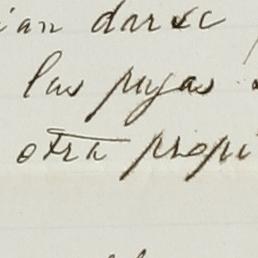 ian darse
las pagas
otra propi